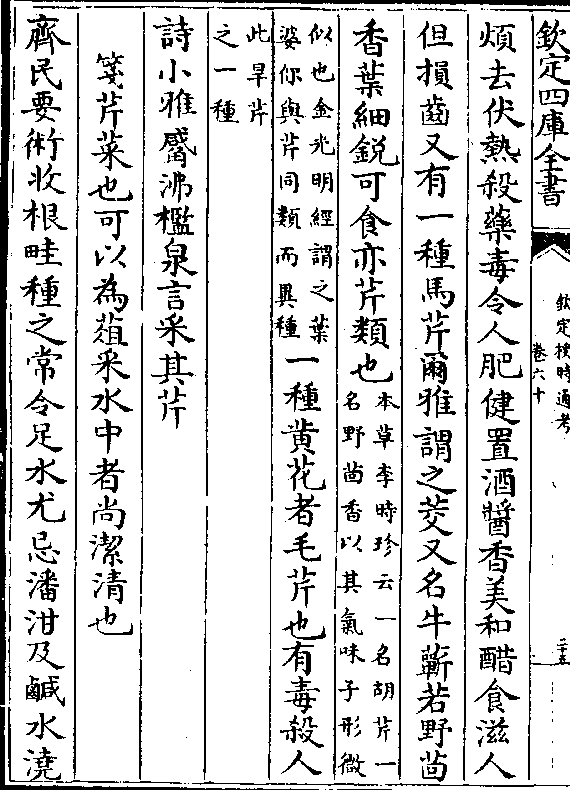 欽定四庫全書
欽定授時通考
卷六十
二十五
煩去伏熱殺藥毒令人肥健置酒醬香美和醋食滋人
但損齒又有一種馬芹爾雅謂之茭又名牛蘄若野茴
香葉細鋭可食亦芹類也
本草李時珍云一名胡芹一
名野茴香以其氣味子形微
似也金光明經謂之葉
婆你與芹同類而異種
一種黄花者毛芹也有毒殺人
此旱芹
之一種
詩小雅觱沸檻泉言采其芹
箋芹菜也可以為葅采水中者尚潔清也
齊民要術收根畦種之常令足水尤忌潘泔及鹹水澆